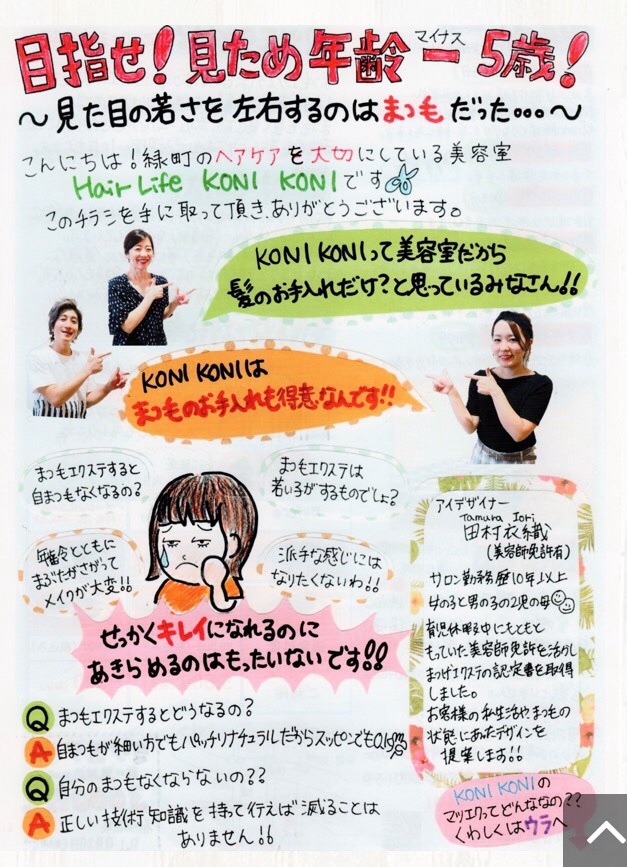 目指せ!見ため年齢ー5歳!
マイナス
〜見た目の若さを左右するのはまつもだった…〜
こんにちは!緑町のヘアケアを大切にしている美容室
Hair Life KONI KONIです
このチラシを手に取って頂き、ありがとうございます。
KONI KONIって美容室だから
髪のお手入れだけ?と思っているみなさん!!
KONI KONIは
まつものお手入れも得意なんです!!
まつもエクステすると
自まつもなくなるの?
まつもエクステは
若い子がするものでしょ?
年齢とともに
まぶたがさがって
メイクが大変!!
派手な感じには
なりたくないわ!!
せっかくキレイになれるのに
あきらめるのはもったいないです!!
アイデザイナー
Tamura Iori
田村衣織
(美容師免許有)
サロン勤務歴10年以上
女の子と男の子の2児の母
育児休暇中にもともと
もっていた美容師免許を活かし
まつげエクステの認定書を取得
しました。
お客様の私生活や、まつもの
状態にあったデザインを
提案します!!
Q まつもエクステするとどうなるの?
A 自まつもが細い方でもパッチリナチュラルだからスッピンでも
Q 自分のまつもなくならないの??
A 正しい技術知識を持って行えば減ることは
ありません!!
KONI KONIの
マツエクってどんななの??
くわしくはウラへ